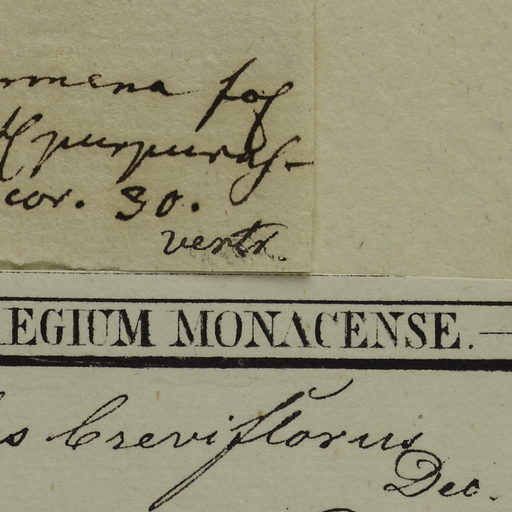 rmena fol
purpuras-
cor. 30.
vertx.
EGIUM MONACENSE.
s breviflorus
Dec.